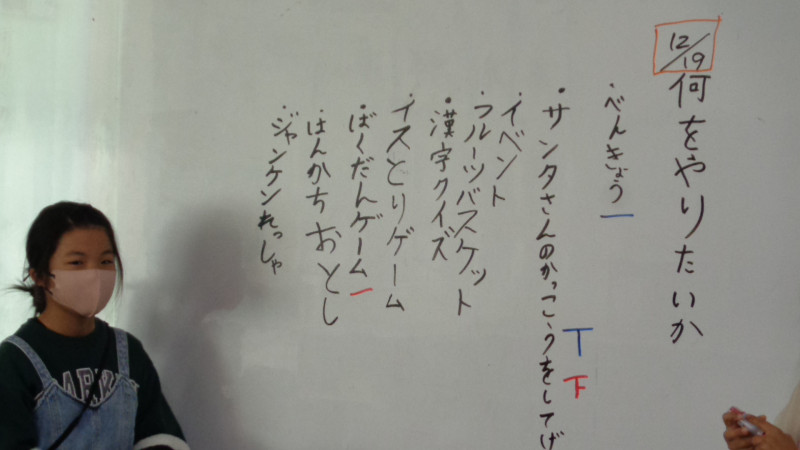 12/19
何をやりたいか
・べんきょう 一
・サンタさんのかっこうをしてげ
T 下
・イベント
・フルーツバスケット
・漢字クイズ
・イスとりゲーム
・ばくだんゲーム 一
・はんかちおとし
・ジャンケンれっしゃ